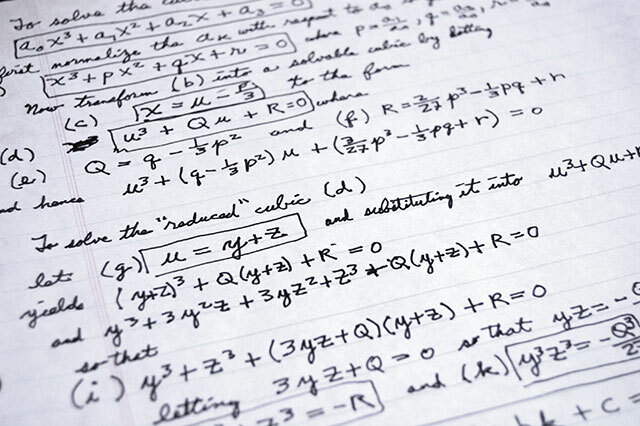 To solve the
a₀x³ + a₁x² + a₂x + a₃ = 0
first normalize the aₖ with respect to a₀
x³ + px² + qx + r = 0 where p = a₁/a₀, q = a₂/a₀, r =
Now transform (b) into a solvable cubic by letting
(c) x = u - p/3 to the form
(d) u³ + Qu + R = 0 where
(e) Q = q - 1/3 p² and (f) R = 2/27 p³ - 1/3 pq + r
and hence u³ + (q - 1/3 p²) u + (2/27 p³ - 1/3 pq + r) = 0
To solve the "reduced" cubic (d)
let (g) u = y + z and substituting it into u³ + Qu +
yields (y+z)³ + Q(y+z) + R = 0
and y³ + 3y²z + 3yz² + z³ + Q(y+z) + R = 0
so that
(i) y³ + z³ + (3yz + Q)(y+z) + R = 0
letting 3yz + Q = 0 so that yz = -
z³ = -R and (k) y³z³ = -Q³/
+ c =